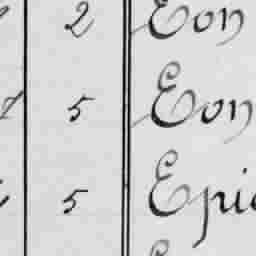 2 Eon
5 Eon
5 Epi